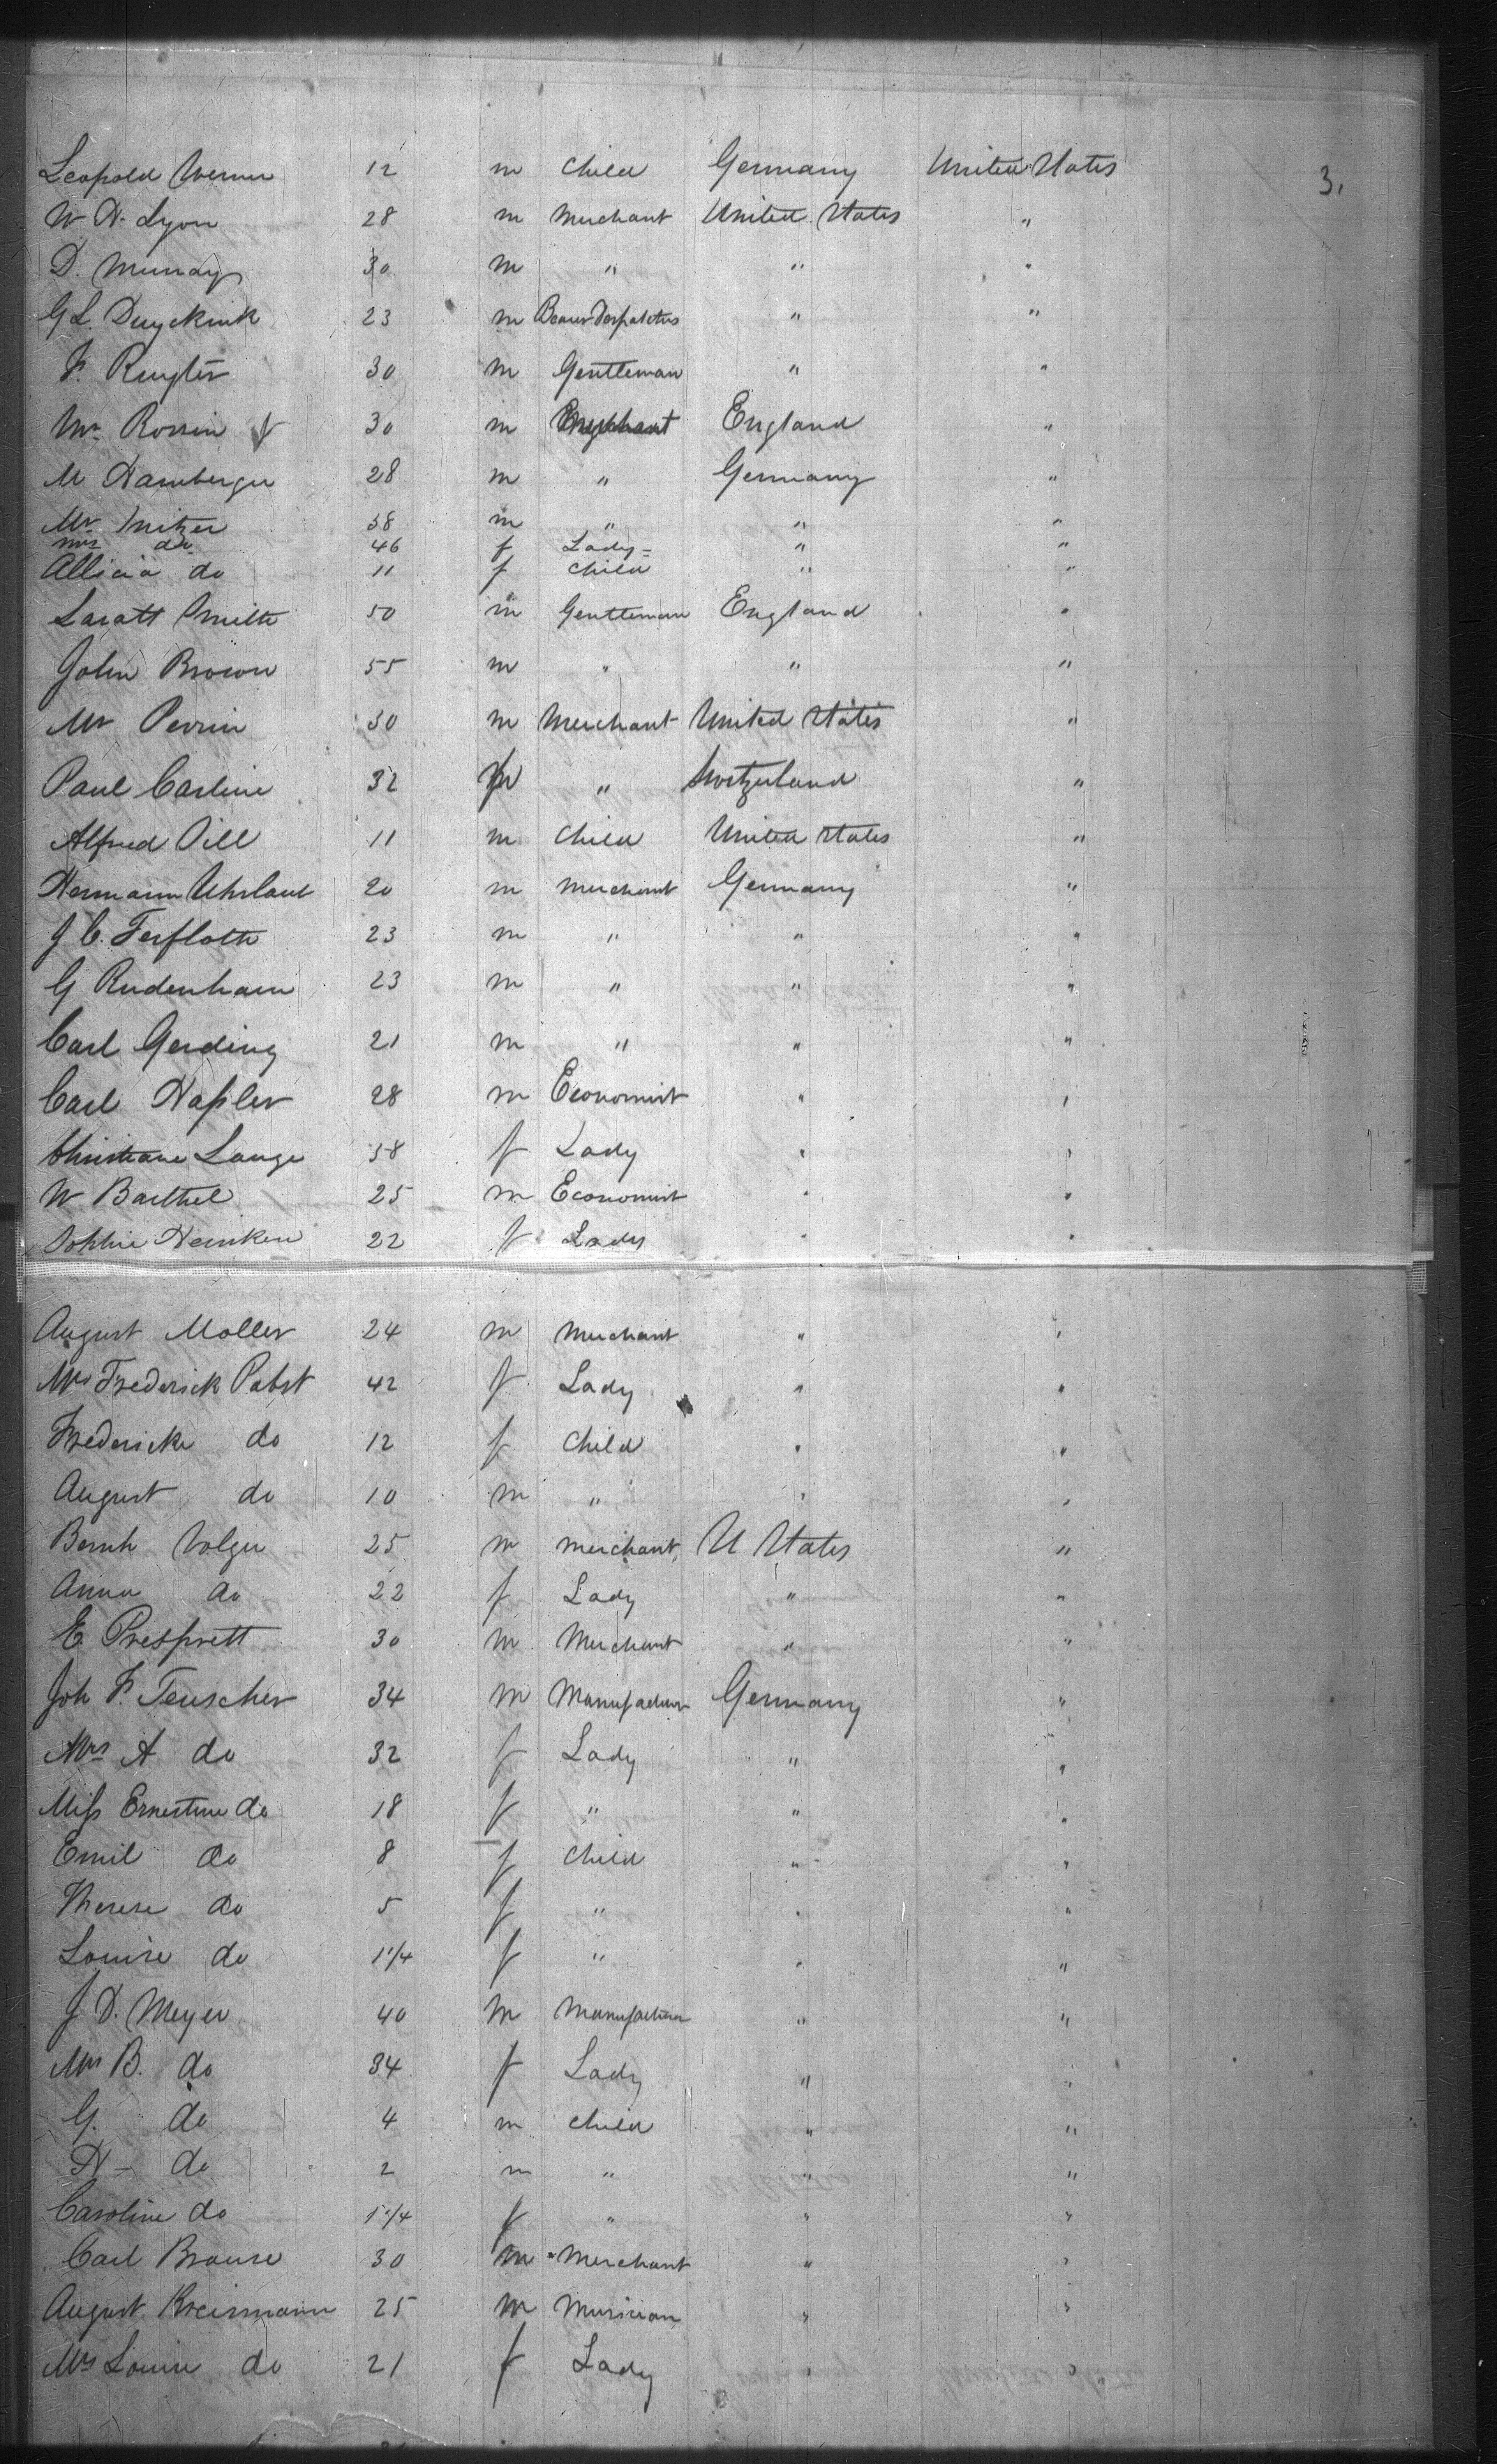 Leopold Werner 12 m Child Germany United States 3.
W H. Lyon 28 m Merchant United States "
D. Murray 30 m " " "
G L. Duyckink 23 m Bearer Despatches " "
F. Ruyter 30 m Gentleman " "
Mr. Rossin 30 m England "
M Hamberger 28 m " Germany "
Mr 38 m " " "
Mrs do 46 f Lady " "
Allicia do 11 f Child " "
Smith 50 m Gentleman England "
John Brown 55 m " " "
Mr Perrin 30 m Merchant United States "
Paul Carline 32 m " Switzerland "
Alfred Sill 11 m Child United States "
Hermann Uhrlaub 20 m Merchant Germany "
J C. Terfloth 23 m " " "
G Rudenham 23 m " " "
Carl Gerding 21 m " " "
Carl Hassler 28 m Economist " "
Christiane Lange 38 f Lady " "
W Barthel 25 m Economist " "
Sophie Heinken 22 f Lady " "
August Moller 24 m Merchant " "
Mrs Frederick Pabst 42 f Lady " "
Fredericke do 12 f Child " "
August do 10 m " " "
Bernh Volger 25 m Merchant U States "
Anna do 22 f Lady " "
E. Presprett 30 m Merchant " "
Joh F. Teuscher 34 m Manufacturer Germany "
Mrs A do 32 f Lady " "
Miss Ernestine do 18 f " " "
Emil do 8 f Child " "
Therese do 5 f " " "
Louise do 1 1/4 f " " "
J D. Meyer 40 m Manufacturer " "
Mrs B. do 34 f Lady " "
G. do 4 m Child " "
H - do 2 m " " "
Caroline do 1 1/4 f " " "
Carl Brause 30 m Merchant " "
August Kreismann 25 m Musician " "
Mrs Louise do 21 f Lady " "